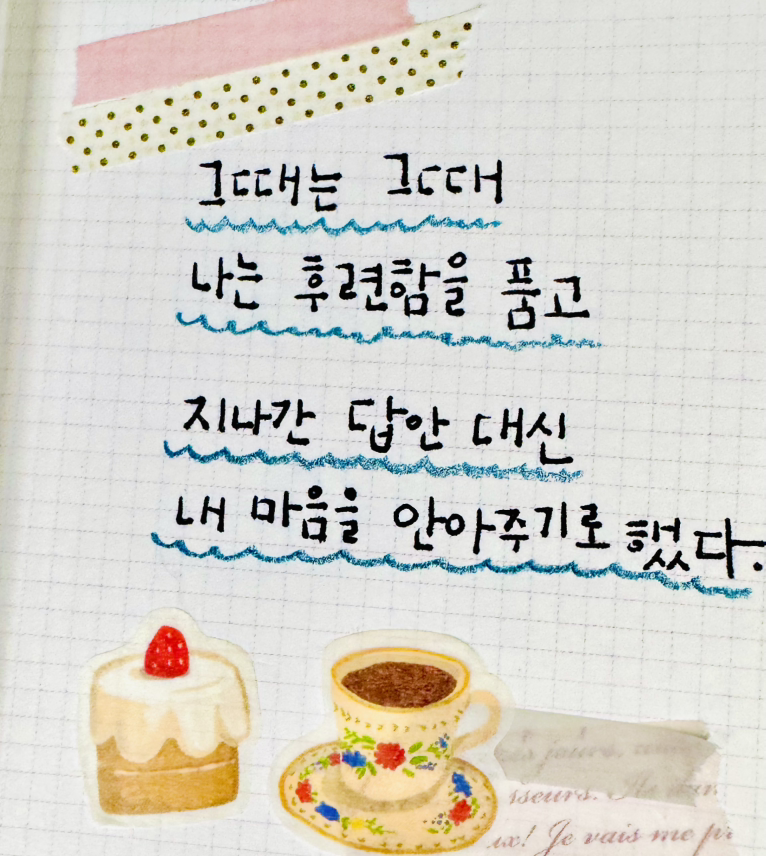 그때는 그대
나는 후련함을 품고
지나간 답안 대신
내 마음을 안아주기로 했다.
isseurs.
ux! Je vais me